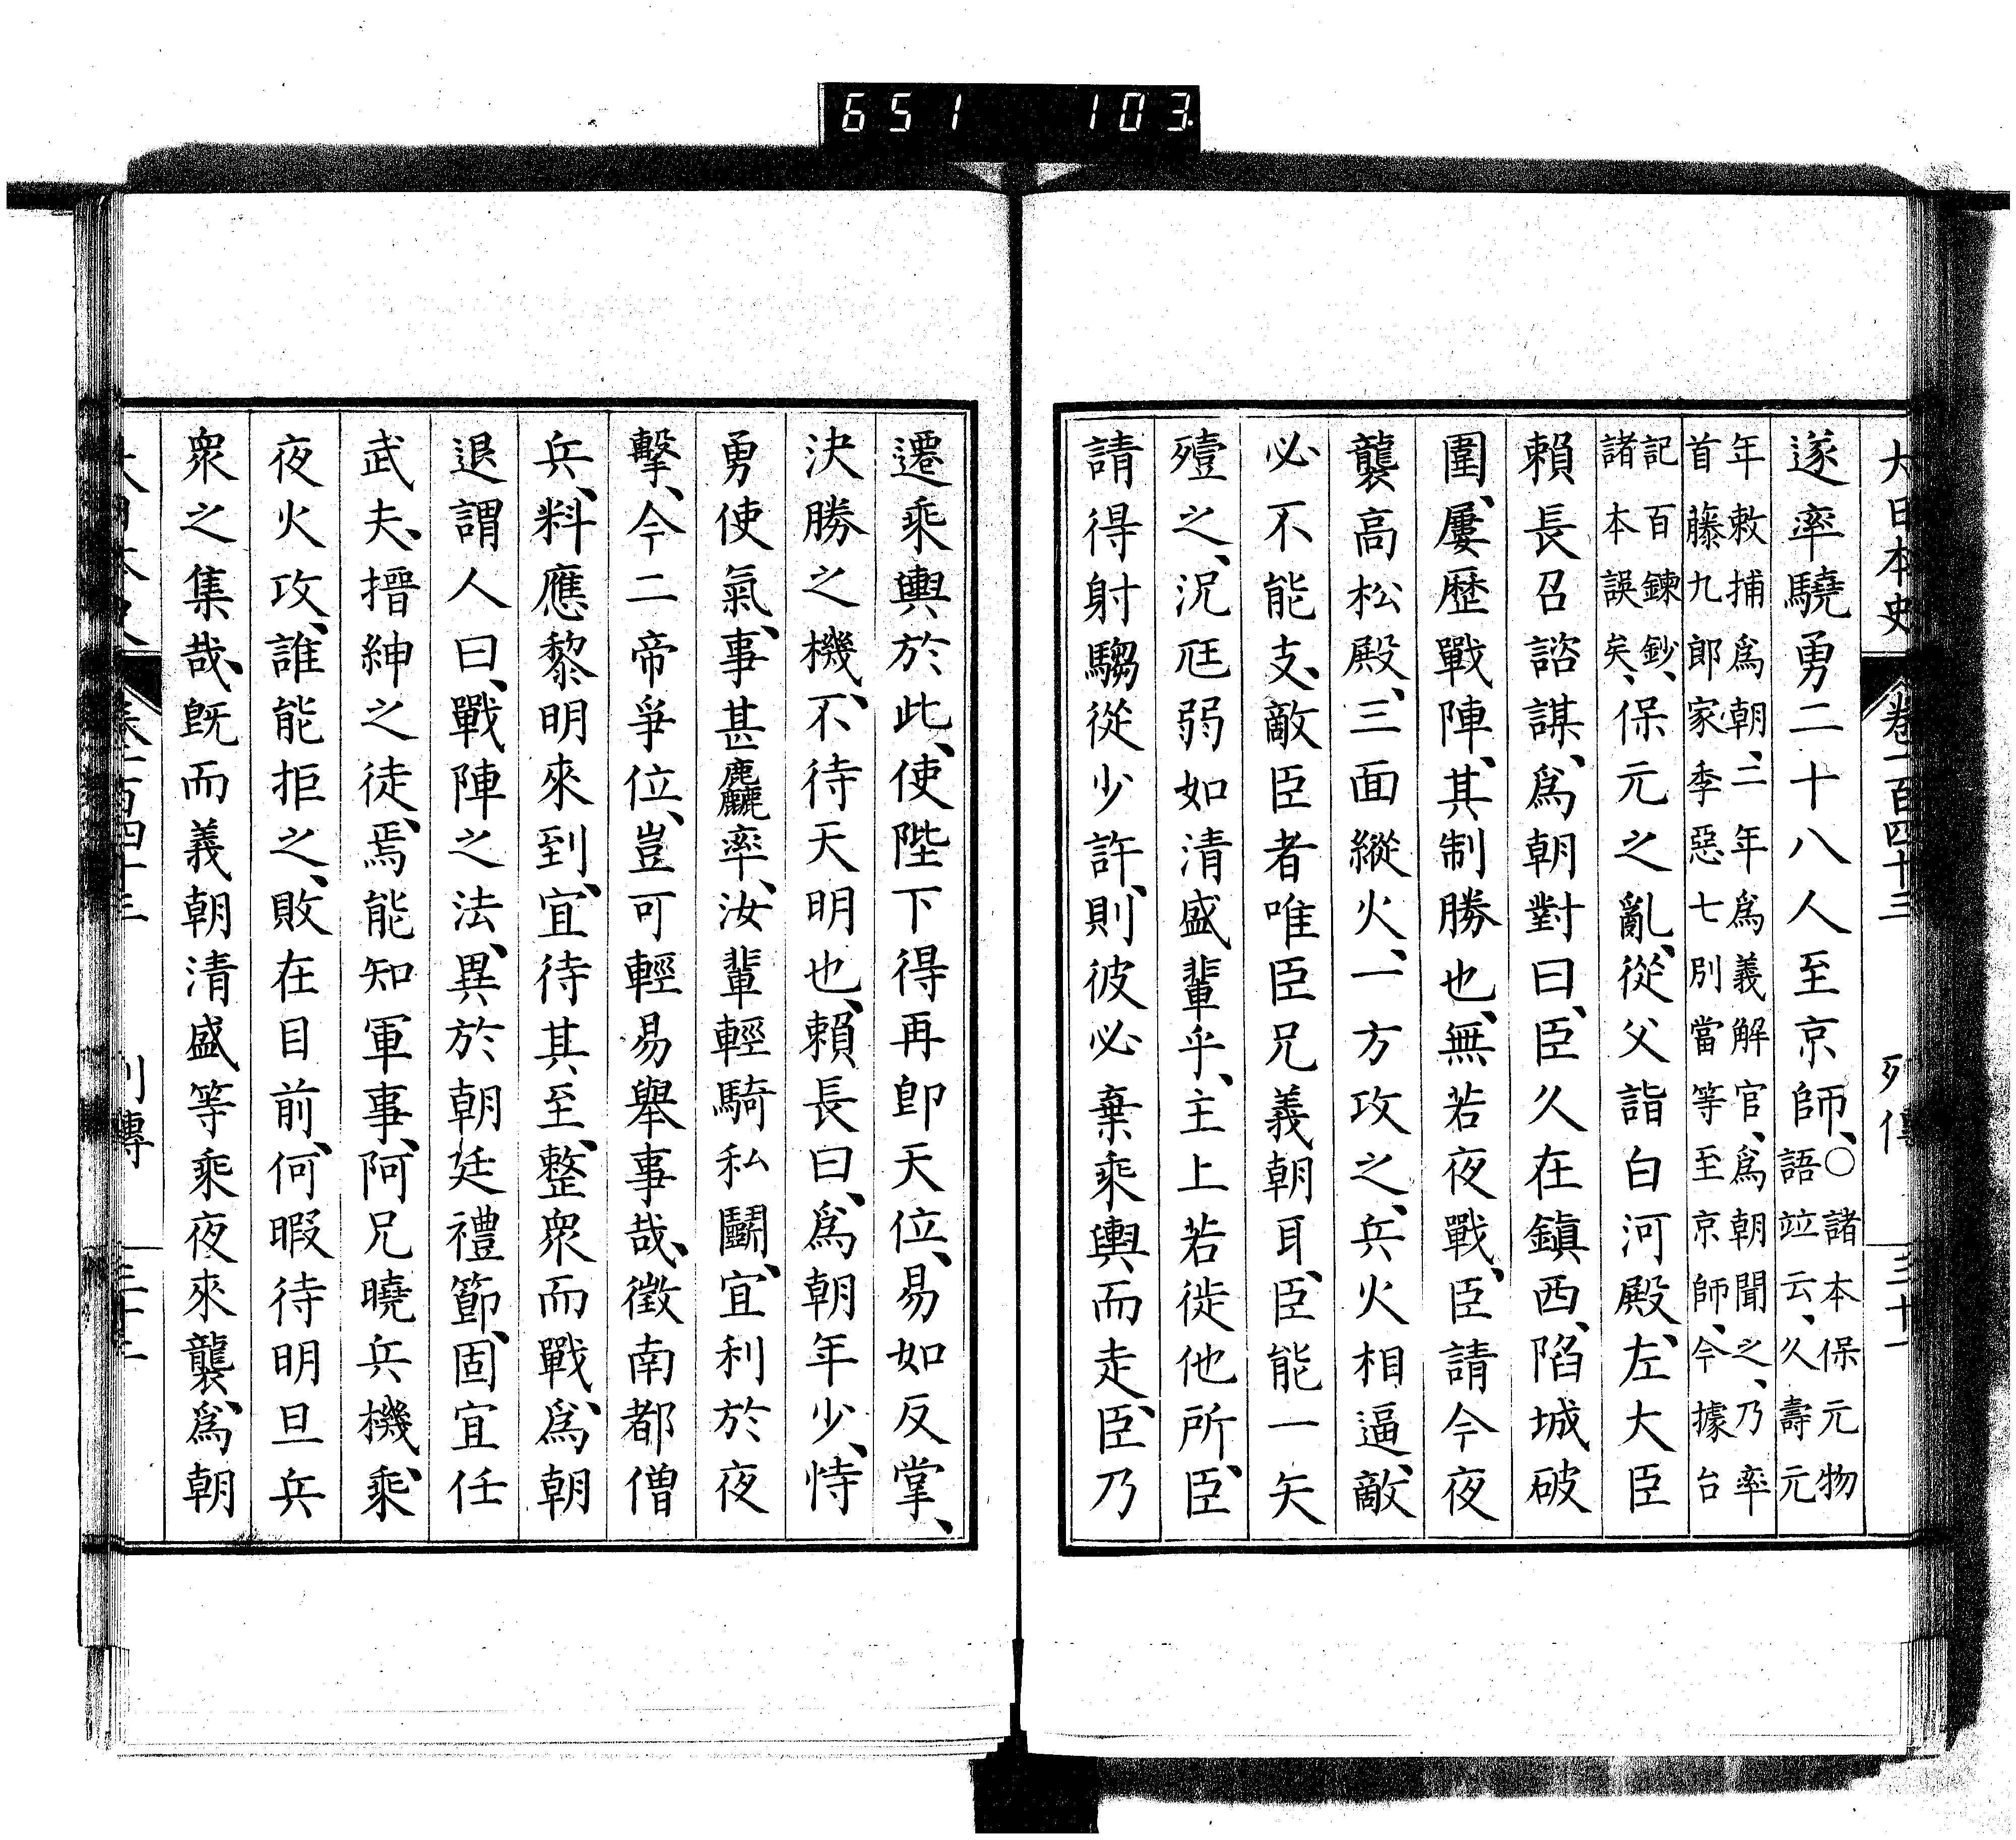 651 103
大日本史 卷一百四十三 列傳 三十一
遂率驍勇二十八人至京師、○諸本保元物語竝云、久壽元
年敕捕爲朝、二年爲義解官、爲朝聞之、乃率首藤九郎家季惡七別當等至京師、今據台
記百鍊鈔、諸本誤矣、保元之亂、從父詣白河殿、左大臣
賴長召諮謀、爲朝對曰、臣久在鎮西、陷城破
圍、屢歷戰陣、其制勝也、無若夜戰、臣請今夜
襲高松殿、三面縱火、一方攻之、兵火相逼、敵
必不能支、敵臣者唯臣兄義朝耳、臣能一矢
殪之、況尫弱如清盛輩乎、主上若徙他所、臣
請得射騶從少許、則彼必棄乘輿而走、臣乃
遷乘輿於此、使陛下得再卽天位、易如反掌、
決勝之機、不待天明也、賴長曰、爲朝年少、恃
勇使氣、事甚麤率、汝輩輕騎私鬭、宜利於夜
擊、今二帝爭位、豈可輕易舉事哉、徵南都僧
兵、料應黎明來到、宜待其至、整衆而戰、爲朝
退謂人曰、戰陣之法、異於朝廷禮節、固宜任
武夫、搢紳之徒、焉能知軍事、阿兄曉兵機、乘
夜火攻、誰能拒之、敗在目前、何暇待明旦兵
衆之集哉、旣而義朝清盛等乘夜來襲、爲朝
大日本史 卷一百四十三 列傳